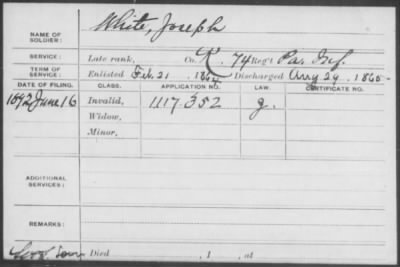 NAME OF SOLDIER: White, Joseph
SERVICE: Late rank, Co. K, 74 Reg't Pa. Inf.
TERM OF SERVICE: Enlisted Feb. 21 1864 Discharged Aug 29, 1865
DATE OF FILING. CLASS. APPLICATION NO. LAW. CERTIFICATE NO.
1892 June 16 Invalid, 1117.352 g.
Widow,
Minor,
ADDITIONAL SERVICES:
REMARKS:
Died , 1 , at